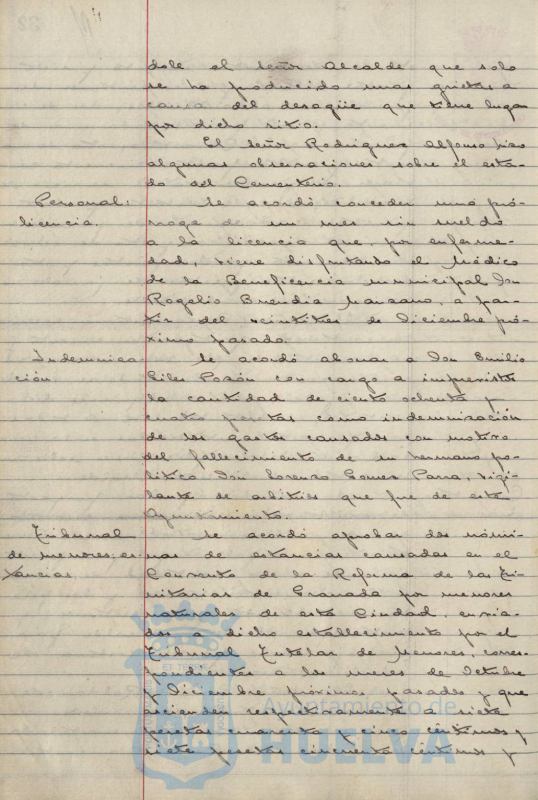 dole el Señor Alcalde que solo
se ha producido unas grietas a
causa del desagüe que tiene lugar
por dicho sitio.
El Señor Rodriguez Alfonso hizo
algunas observaciones sobre el esta-
do del Cementerio.
Personal:
licencia.
Se acordó conceder una pró-
rroga de un mes sin sueldo
a la licencia que, por enferme-
dad, viene disfrutando el Médico
de la Beneficencia municipal Don
Rogelio Buendia Manzano, a par-
tir del veintitres de Diciembre pró-
ximo pasado.
Indemniza
ción
Se acordó abonar a Don Emilio
Giles Pozón con cargo a imprevistos
la cantidad de ciento ochenta y
cuatro pesetas como indemnización
de los gastos causados con motivo
del fallecimiento de su hermano po-
lítico Don Lorenzo Gomez Parra, vigi-
lante de arbitrios que fue de este
Ayuntamiento.
Tribunal
de menores: es-
tancias.
Se acordó aprobar dos nómi-
nas de estancias causadas en el
Convento de la Reforma de las Tri-
nitarias de Granada por menores
naturales de esta Ciudad, envia-
dos a dicho establecimiento por el
Tribunal Tutelar de Menores, corres-
pondientes a los meses de Octubre
y Diciembre próximos pasados y que
ascienden respectivamente a siete
pesetas cuarenta y cinco céntimos y
siete pesetas cincuenta céntimos y
Ayuntamiento de
HUELVA